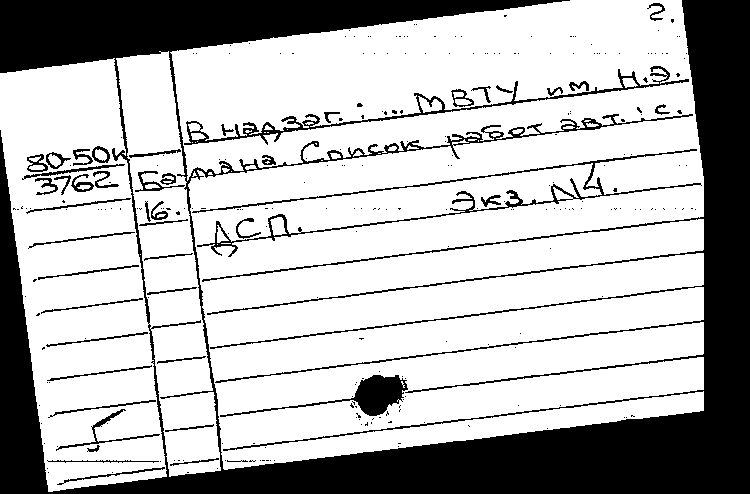 2.
В надзаг.: ... МВТУ им. Н.Э.
80-50к
3762
Баумана. Список работ авт.: с.
16.
ДСП. Экз. N4.